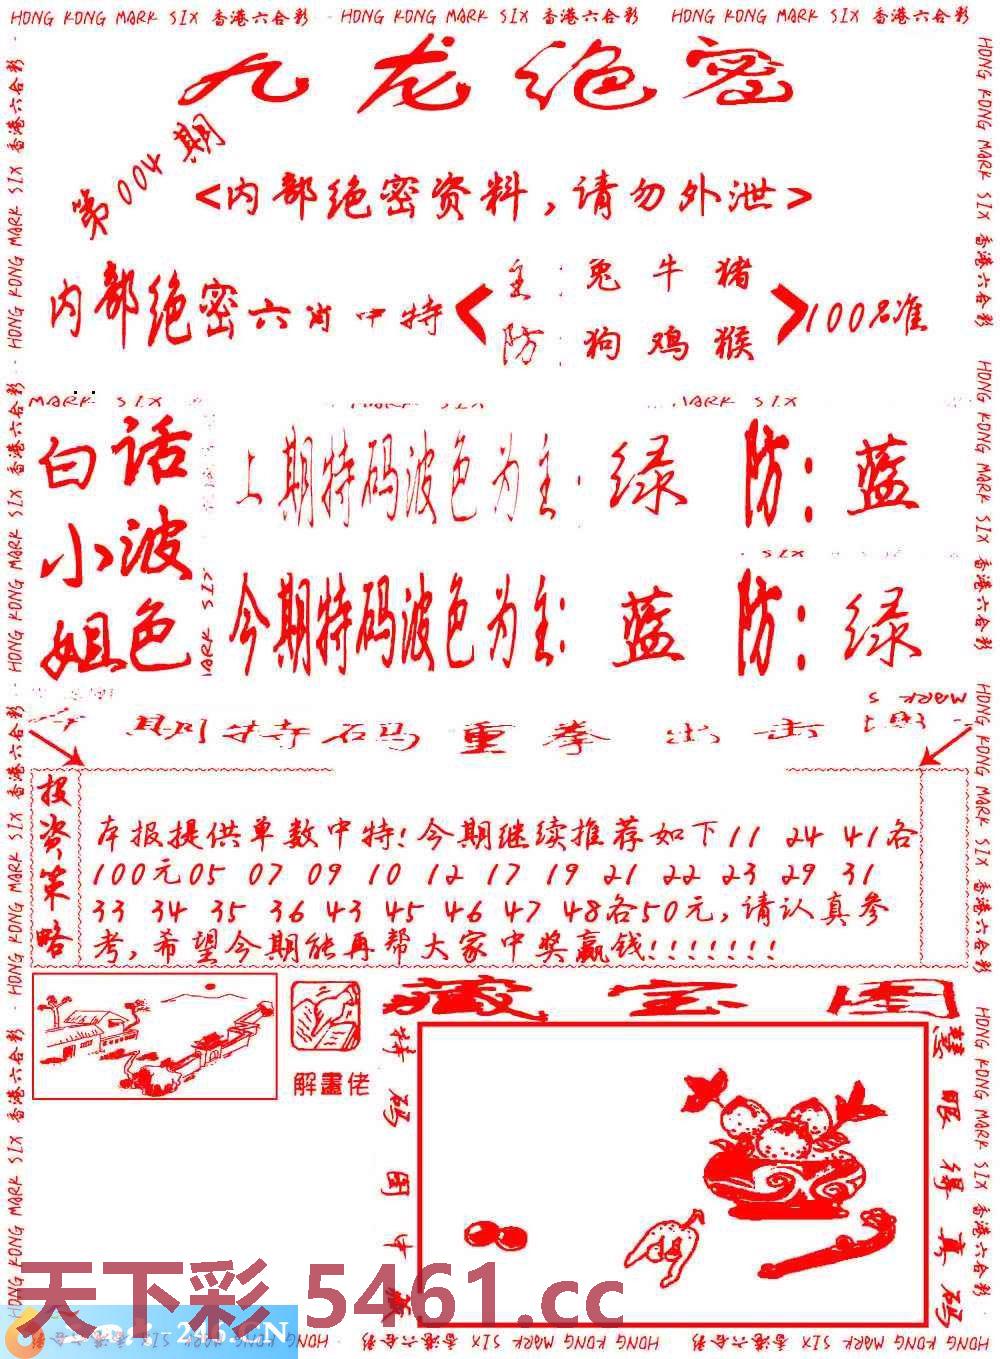 HONG KONG MARK SIX 香港六合彩 HONG KONG MARK SIX 香港六合彩 HONG KONG MARK SIX 香港六合彩
九龙绝密
第004期
<内部绝密资料,请勿外泄>
内部绝密六肖中特
主:兔牛猪
防:狗鸡猴
100%准
MARK SIX
MARK SIX
白话
小波
姐色
上期特码波色为主:绿 防:蓝
SIX
今期特码波色为主:蓝 防:绿
MARK S
期特码重拳出击
投资策略
本报提供单数中特!今期继续推荐如下11 24 41各
100元05 07 09 10 12 17 19 21 22 23 29 31
33 34 35 36 43 45 46 47 48各50元,请认真参
考,希望今期能再帮大家中奖赢钱!!!!!!!
藏宝图
解畫佬
特码图中藏
慧眼得真码
天下彩 5461.cc
246.CN
HONG KONG MARK SIX 香港六合彩 HONG KONG MARK SIX 香港六合彩